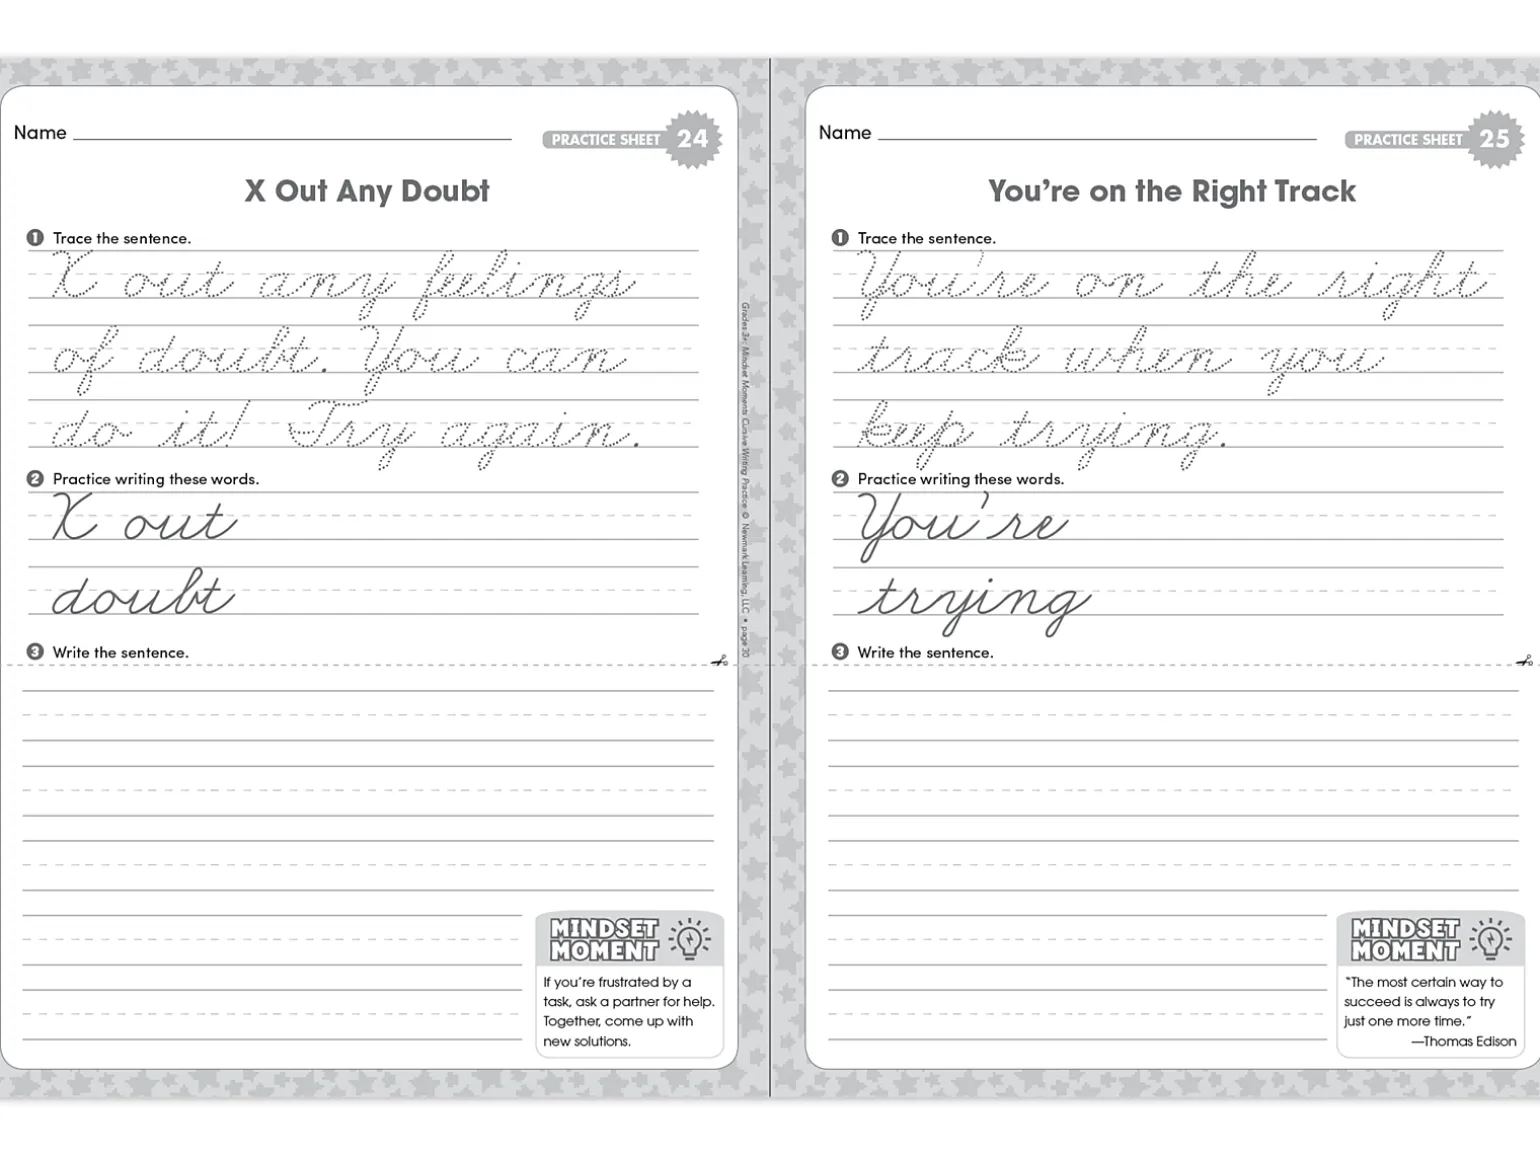 Name
PRACTICE SHEET 24
X Out Any Doubt
1 Trace the sentence.
X out any feelings
of doubt. You can
do it! Try again.
2 Practice writing these words.
X out
doubt
3 Write the sentence.
MINDSET
MOMENT
If you're frustrated by a
task, ask a partner for help.
Together, come up with
new solutions.
Grades 3+: Mindset Moments Cursive Writing Practice © Newmark Learning, LLC • page 30
Name
PRACTICE SHEET 25
You're on the Right Track
1 Trace the sentence.
You're on the right
track when you
keep trying.
2 Practice writing these words.
You're
trying
3 Write the sentence.
MINDSET
MOMENT
"The most certain way to
succeed is always to try
just one more time."
—Thomas Edison